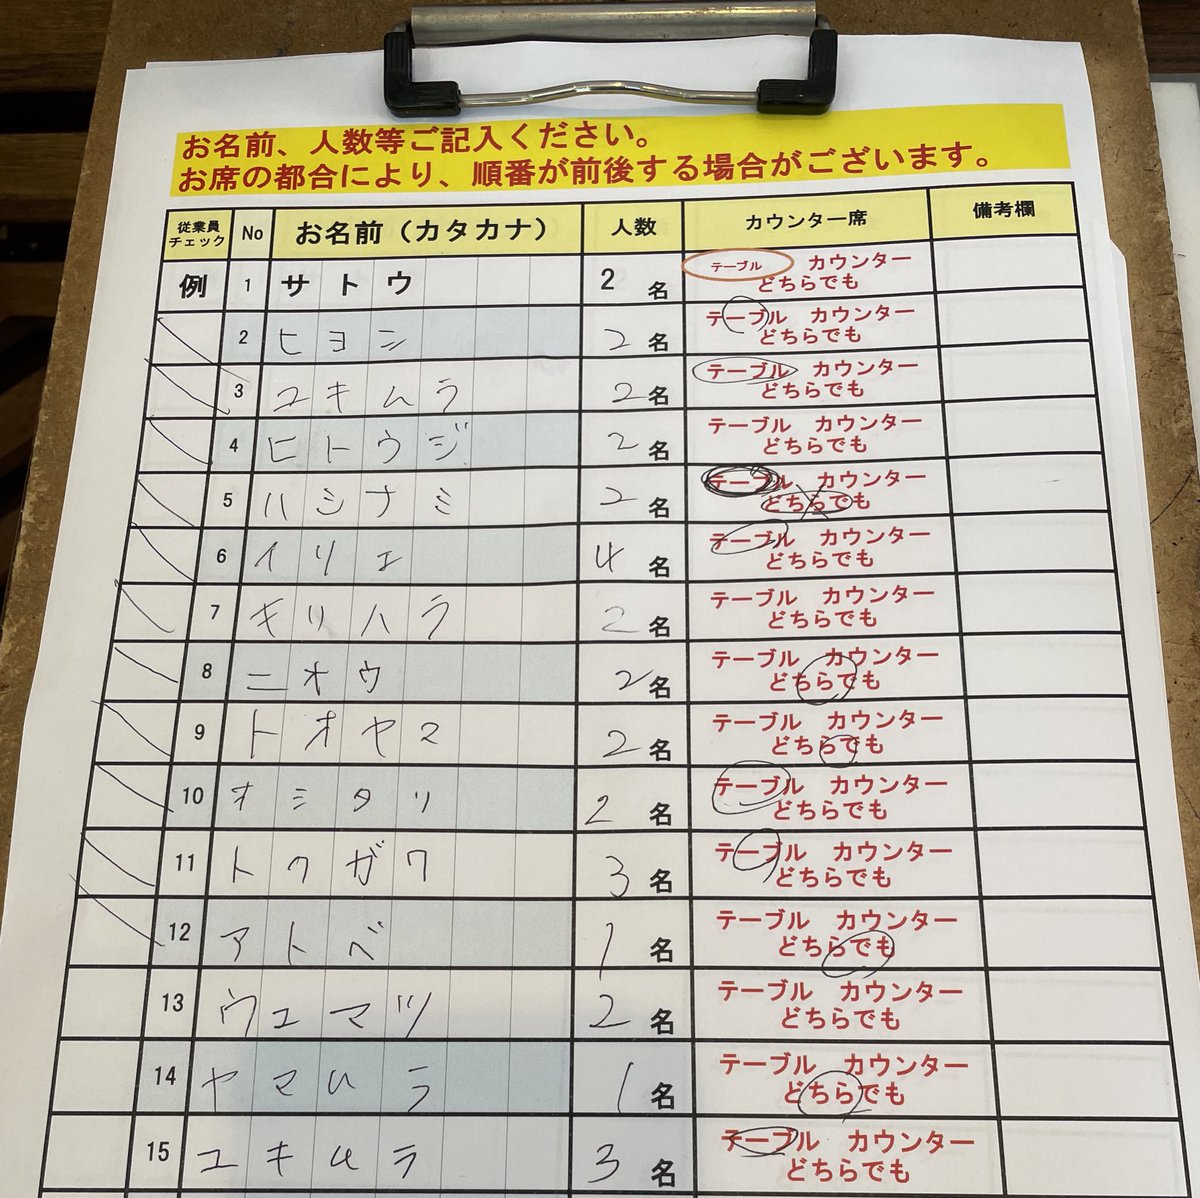 お名前、人数等ご記入ください。
お席の都合により、順番が前後する場合がございます。
従業員チェック No お名前（カタカナ） 人数 カウンター席 備考欄
例 1 サトウ 2 名 テーブル カウンター どちらでも
2 ヒヨシ 2 名 テーブル カウンター どちらでも
3 ユキムラ 2 名 テーブル カウンター どちらでも
4 ヒトウジ 2 名 テーブル カウンター どちらでも
5 ハシナミ 2 名 テーブル カウンター どちらでも
6 イリエ 4 名 テーブル カウンター どちらでも
7 キリハラ 2 名 テーブル カウンター どちらでも
8 ニオウ 2 名 テーブル カウンター どちらでも
9 トオヤマ 2 名 テーブル カウンター どちらでも
10 オシタリ 2 名 テーブル カウンター どちらでも
11 トクガワ 3 名 テーブル カウンター どちらでも
12 アトベ 1 名 テーブル カウンター どちらでも
13 ウエマツ 2 名 テーブル カウンター どちらでも
14 ヤマムラ 1 名 テーブル カウンター どちらでも
15 ユキムラ 3 名 テーブル カウンター どちらでも